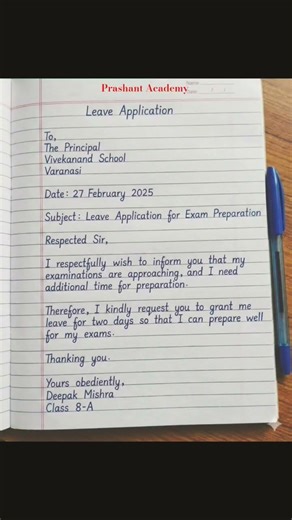 Prashant Academy
Leave Application
To,
The Principal
Vivekanand School
Varanasi
Date: 27 February 2025
Subject: Leave Application for Exam Preparation
Respected Sir,
I respectfully wish to inform you that my
examinations are approaching, and I need
additional time for preparation.
Therefore, I kindly request you to grant me
leave for two days so that I can prepare well
for my exams.
Thanking you.
Yours obediently,
Deepak Mishra
Class 8-A